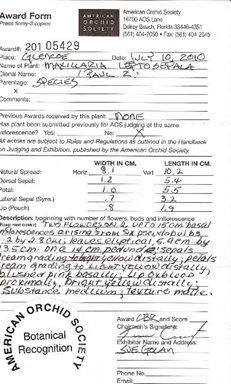 Award Form
Press firmly-3 copies
AMERICAN ORCHID SOCIETY
American Orchid Society
16700 AOS Lane
Delray Beach, Florida 33446-4351
(561) 404-2050 • Fax (561) 404-2045
Award# 20105429
Place: GLENCOE Date: JULY 10, 2010
Name of Plant: MAXILLARIA LEPTOSEPALA
Clonal Name: 'PAUL Z.'
Parentage: SPECIES
Comments:
Previous Awards received by this plant: NONE
Has this plant been submitted previously for AOS judging of the same
inflorescence? Yes: No: X
All entries are subject to Rules and Regulations as outlined in the Handbook
on Judging and Exhibition, published by the American Orchid Society.
WIDTH IN CM. LENGTH IN CM.
Natural Spread: Horiz 8.1 Vert 10.2
Dorsal Sepal: 1.2 5.4
Petal: 1.0 5.5
Lateral Sepal (Syns.) 3.2
Lip (Pouch) 1.9
Description: beginning with number of flowers, buds and inflorescence
TWO FLOWERS ON 2, UP TO 15 CM basal
inflorescences arising from six pseudobulbs
2 by 3 cm; leaves elliptical, 5.4 cm by
sepals
cream grading to light yellow distally; petals
cream grading to light yellow distally,
blushed pink basally; lip
proximally, bright yellow distally;
substance medium; texture matte.
AMERICAN ORCHID SOCIETY
Botanical
Recognition
Award CBR and Score
Chairman's Signature
Exhibitor Name and Address
SUE GOLAN
Phone
Email